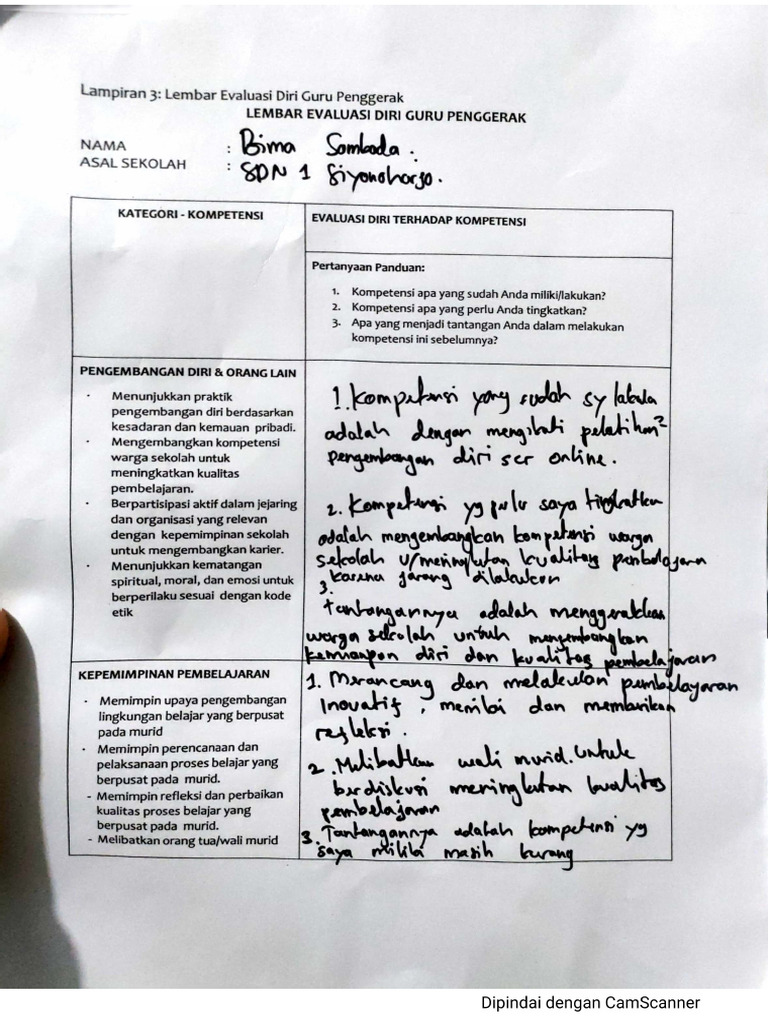 Lampiran 3: Lembar Evaluasi Diri Guru Penggerak
LEMBAR EVALUASI DIRI GURU PENGGERAK
NAMA : Bima Sombada.
ASAL SEKOLAH : SDN 1 Siyonoharjo.
KATEGORI - KOMPETENSI
EVALUASI DIRI TERHADAP KOMPETENSI
Pertanyaan Panduan:
1. Kompetensi apa yang sudah Anda miliki/lakukan?
2. Kompetensi apa yang perlu Anda tingkatkan?
3. Apa yang menjadi tantangan Anda dalam melakukan
kompetensi ini sebelumnya?
PENGEMBANGAN DIRI & ORANG LAIN
· Menunjukkan praktik
pengembangan diri berdasarkan
kesadaran dan kemauan pribadi.
· Mengembangkan kompetensi
warga sekolah untuk
meningkatkan kualitas
pembelajaran.
· Berpartisipasi aktif dalam jejaring
dan organisasi yang relevan
dengan kepemimpinan sekolah
untuk mengembangkan karier.
· Menunjukkan kematangan
spiritual, moral, dan emosi untuk
berperilaku sesuai dengan kode
etik
1. Kompetensi yang sudah sy
adalah dengan mengikuti pelatihan²
pengembangan diri scr online.
2. Kompetensi yg perlu saya tingkatkan
adalah mengembangkan kompetensi warga
sekolah u/meningkatkan kualitas pembelajaran
karena jarang dilakukan
3.
Tantangannya adalah menggerakkan
warga sekolah untuk mengembangkan
kemampuan diri dan kualitas pembelajaran
KEPEMIMPINAN PEMBELAJARAN
· Memimpin upaya pengembangan
lingkungan belajar yang berpusat
pada murid
· Memimpin perencanaan dan
pelaksanaan proses belajar yang
berpusat pada murid.
- Memimpin refleksi dan perbaikan
kualitas proses belajar yang
berpusat pada murid.
- Melibatkan orang tua/wali murid
1. Merancang dan melakukan pembelajaran
Inovatif, menilai dan memberikan
refleksi.
2. Melibatkan wali murid untuk
berdiskusi meningkatkan kualitas
pembelajaran
3. Tantangannya adalah kompetensi yg
saya miliki masih kurang
Dipindai dengan CamScanner